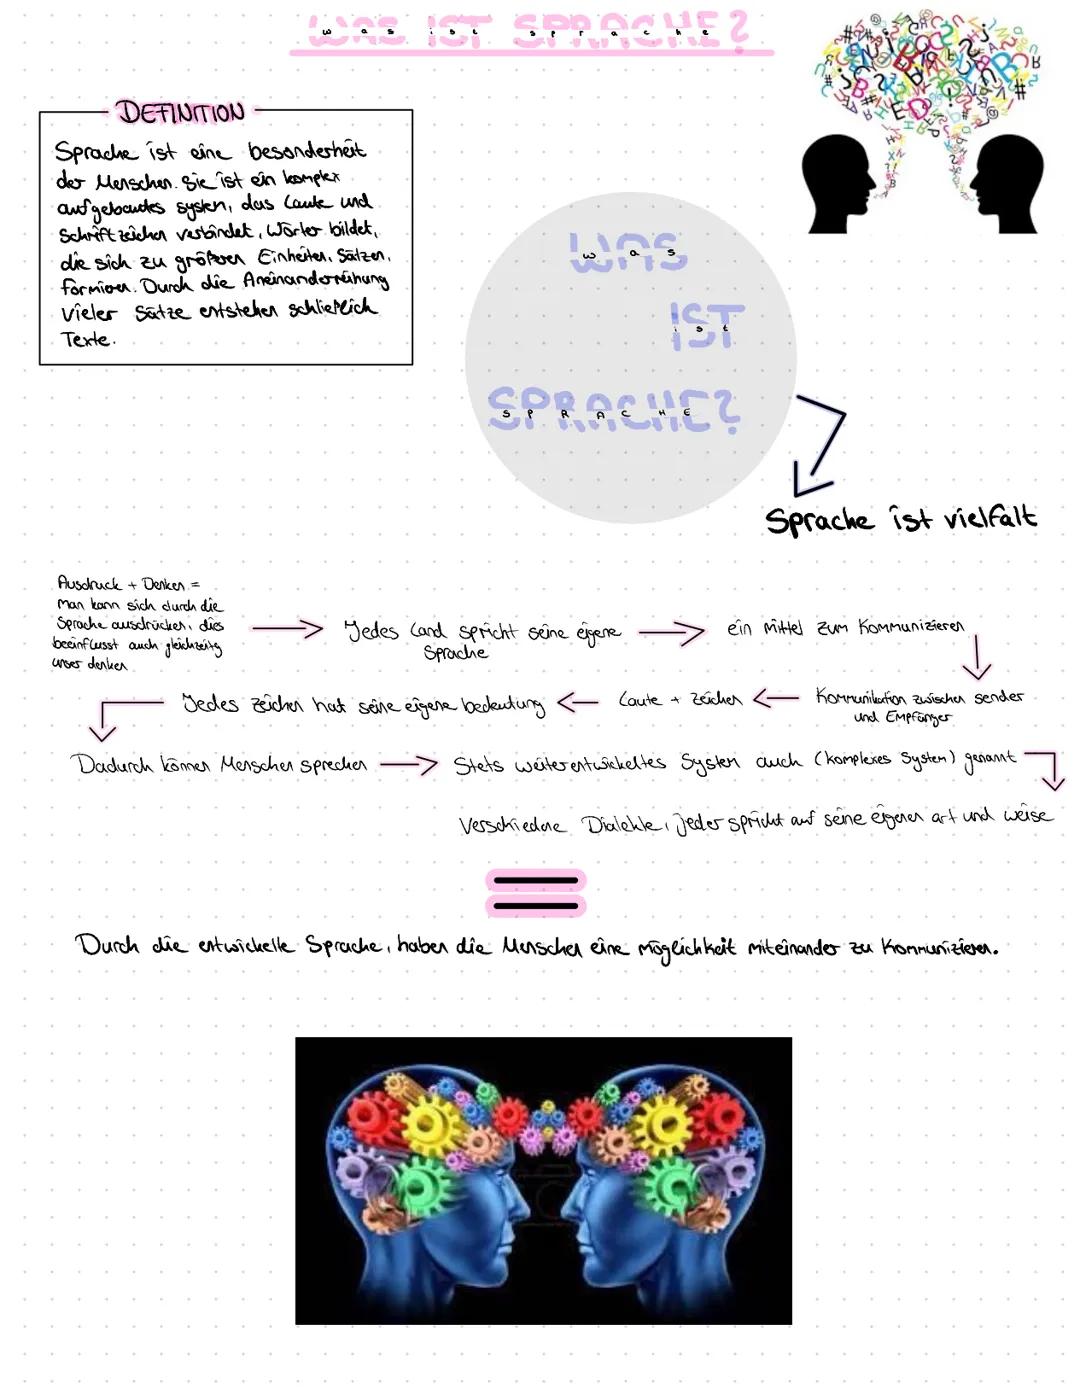 WAS IST SPRACHE?
was ist sprache
DEFINITION
Sprache ist eine besonderheit
der Menschen. Sie ist ein komplex
aufgebautes system, das Laute und
Schriftzeichen verbindet, Wörter bildet,
die sich zu größeren Einheiten, Sätzen,
formieren. Durch die Aneinanderreihung
vieler Sätze entstehen schließlich
Texte.
WAS
was
IST
ist
SPRACHE?
SPRACHE
Sprache ist vielfalt
Ausdruck + Denken =
Man kann sich durch die
Sprache ausdrücken, dies
beeinflusst auch gleichzeitg
unser denken
Jedes Land spricht seine eigene
Sprache
ein mittel zum Kommunizieren
Kommunikation zwischen sender
und Empfänger
Laute + zeichen
Jedes zeichen hat seine eigene bedeutung
Dadurch können Menschen sprechen
Stets weiterentwickeltes System auch (komplexes System) genannt
Verschiedene Dialekte, jeder spricht auf seine eigenen art und weise
Durch die entwickelle Sprache, haben die Menschen eine möglichkeit miteinander zu Kommunizieren.